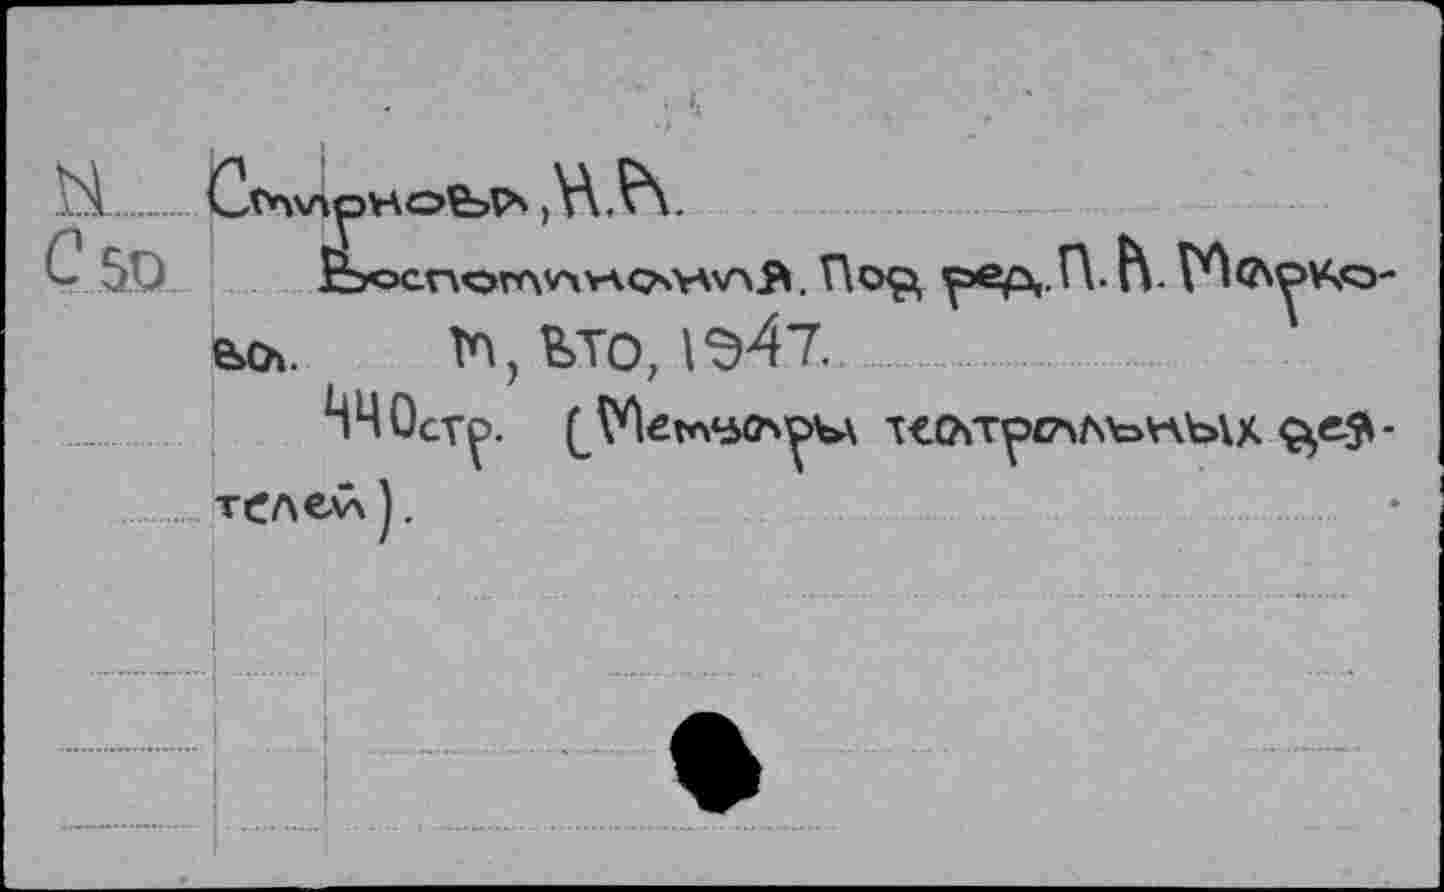 N Смирнова, Н.А.
С 50 Воспоминания. Под ред. П.А. Марко-
ва. М, ВТО, 1947.
440стр. (Мемуары театральных дея-
телей).